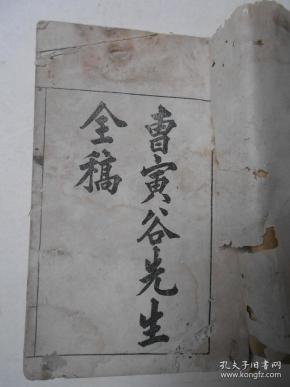 曹寅谷先生
全稿
孔夫子旧书网
www.kongfz.com